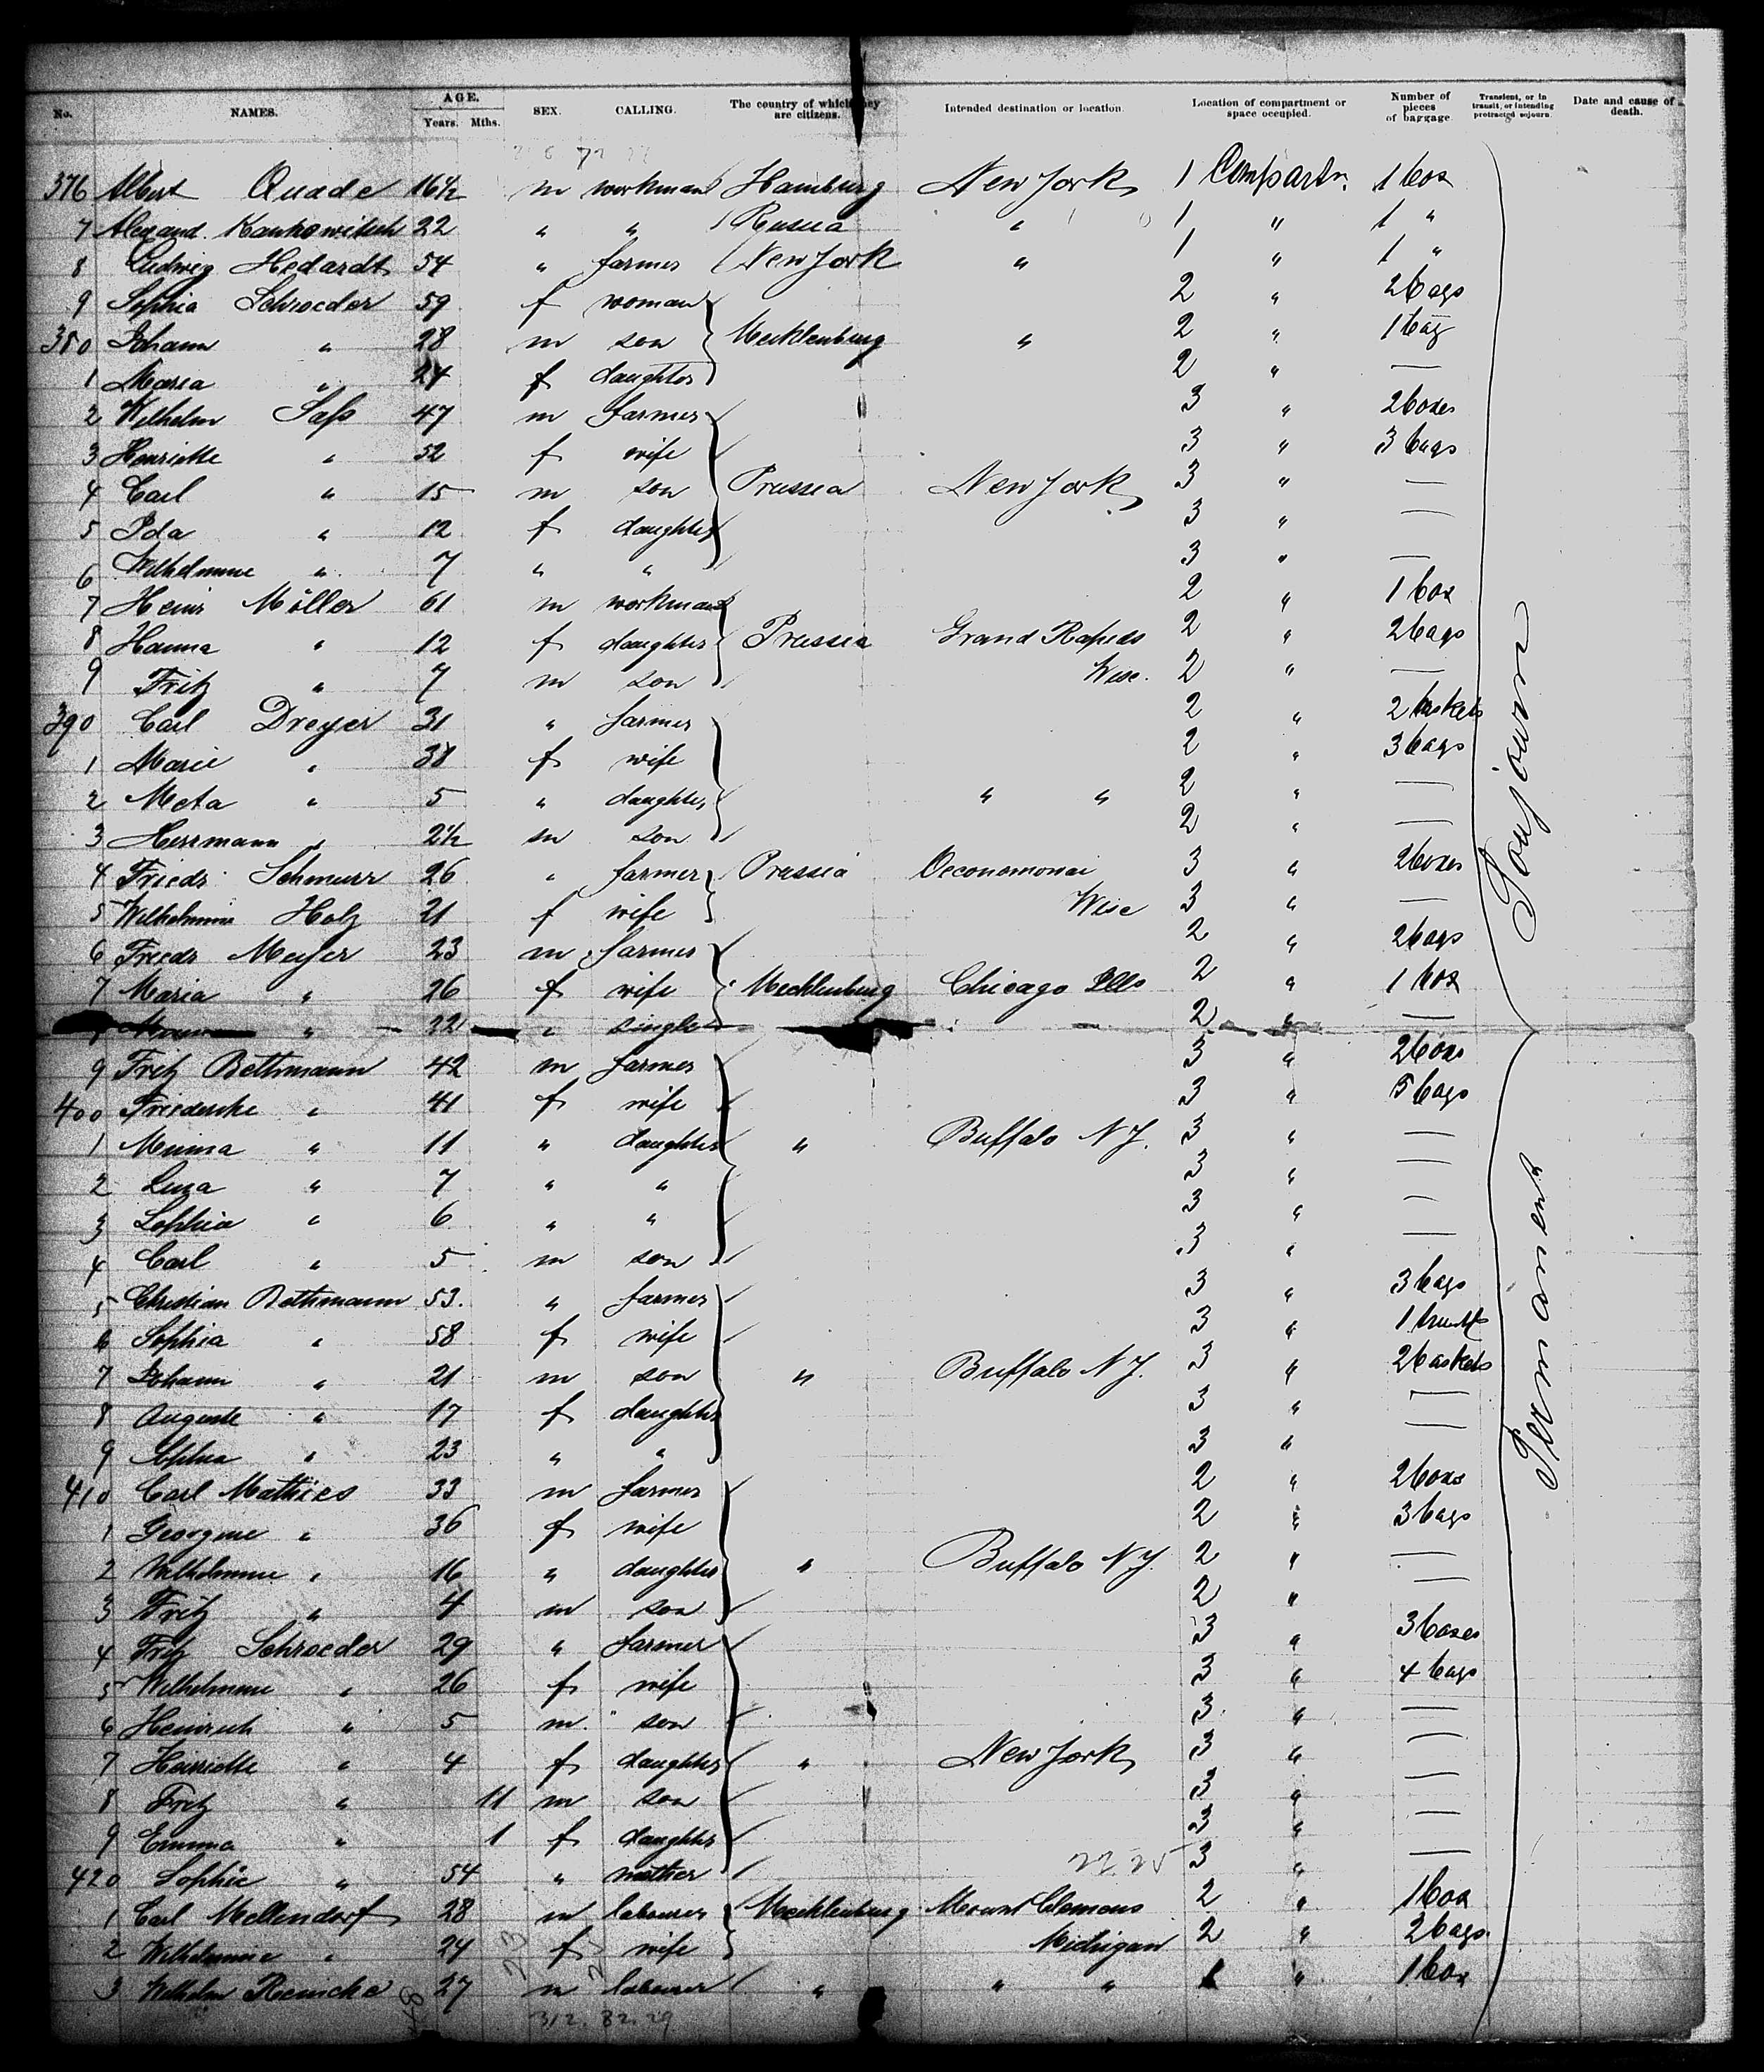 No. NAMES. AGE. Years. Mths. SEX. CALLING. The country of which they are citizens. Intended destination or location. Location of compartment or space occupied. Number of pieces of baggage Transient, or in transit, or intending protracted sojourn. Date and cause of death.
376 Albert Quade 16½ m workman Hamburg New York 1 Compartm. 1 box
7 Alexand. Kankowitsch 22 " " Russia " 1 " 1 "
8 Ludwig Hedardt 54 " farmer New York " 1 " 1 "
9 Sophia Schroeder 59 f woman 2 " 2 bags
380 Johann " 28 m son Mecklenburg " 2 " 1 bag
1 Maria " 24 f daughter 2 " —
2 Wilhelm Saß 47 m farmer 3 " 2 boxes
3 Henriette " 52 f wife 3 " 3 bags
4 Carl " 15 m son Prussia New York 3 " —
5 Ida " 12 f daughter 3 " —
6 Wilhelmine " 7 " " 3 " —
7 Heinr Möller 61 m workman 2 " 1 box
8 Hanna " 12 f daughter Prussia Grand Rapids 2 " 2 bags
9 Fritz " 7 m son Wisc. 2 " —
390 Carl Dreyer 31 " farmer 2 " 2 baskets
1 Marie " 38 f wife 2 " 3 bags
2 Meta " 5 " daughter " " 2 " —
3 Herrmann " 2½ m son 2 " —
4 Friedr Schmurr 26 " farmer Prussia Oeconomowai 3 " 2 boxes
5 Wilhelmine Holz 21 f wife Wisc 3 " —
6 Friedr Meyer 23 m farmer 2 " 2 bags
7 Maria " 26 f wife Mecklenburg Chicago Ills 2 " 1 box
" 22 " single 2 " —
9 Fritz Bethmann 42 m farmer 3 " 2 boxes
400 Friedericke " 41 f wife 3 " 5 bags
1 Minna " 11 " daughter " Buffalo N Y. 3 " —
2 Lina " 7 " " 3 " —
3 Sophia " 6 " " 3 " —
4 Carl " 5 m son 3 " —
5 Christian Bethmann 53. " farmer 3 " 3 bags
6 Sophia " 58 f wife 3 " 1 trunk
7 Johann " 21 m son " Buffalo N Y. 3 " 2 baskets
8 Auguste " 17 f daughter 3 " —
9 Sophia " 23 " " 3 " —
410 Carl Mathies 33 m farmer 2 " 2 boxes
1 Georgine " 36 f wife 2 " 3 bags
2 Wilhelmine " 16 " daughter " Buffalo N Y. 2 " —
3 Fritz " 4 m son 2 " —
4 Fritz Schroeder 29 " farmer 3 " 3 boxes
5 Wilhelmine " 26 f wife 3 " 4 bags
6 Heinrich " 5 m. son 3 " —
7 Henriette " 4 f daughter " New York 3 " —
8 Fritz " 11 m son 3 " —
9 Emma " 1 f daughter 3 " —
420 Sophie " 54 " mother 3 " —
1 Carl Mellendorf 28 m labourer Mecklenburg Mount Clemens 2 " 1 box
2 Wilhelmine " 24 f wife Michigan 2 " 2 bags.
3 Wilhelm Reinicke 27 m labourer " " " 1 " 1 box
Soujourn
Permanent
312. 82. 29